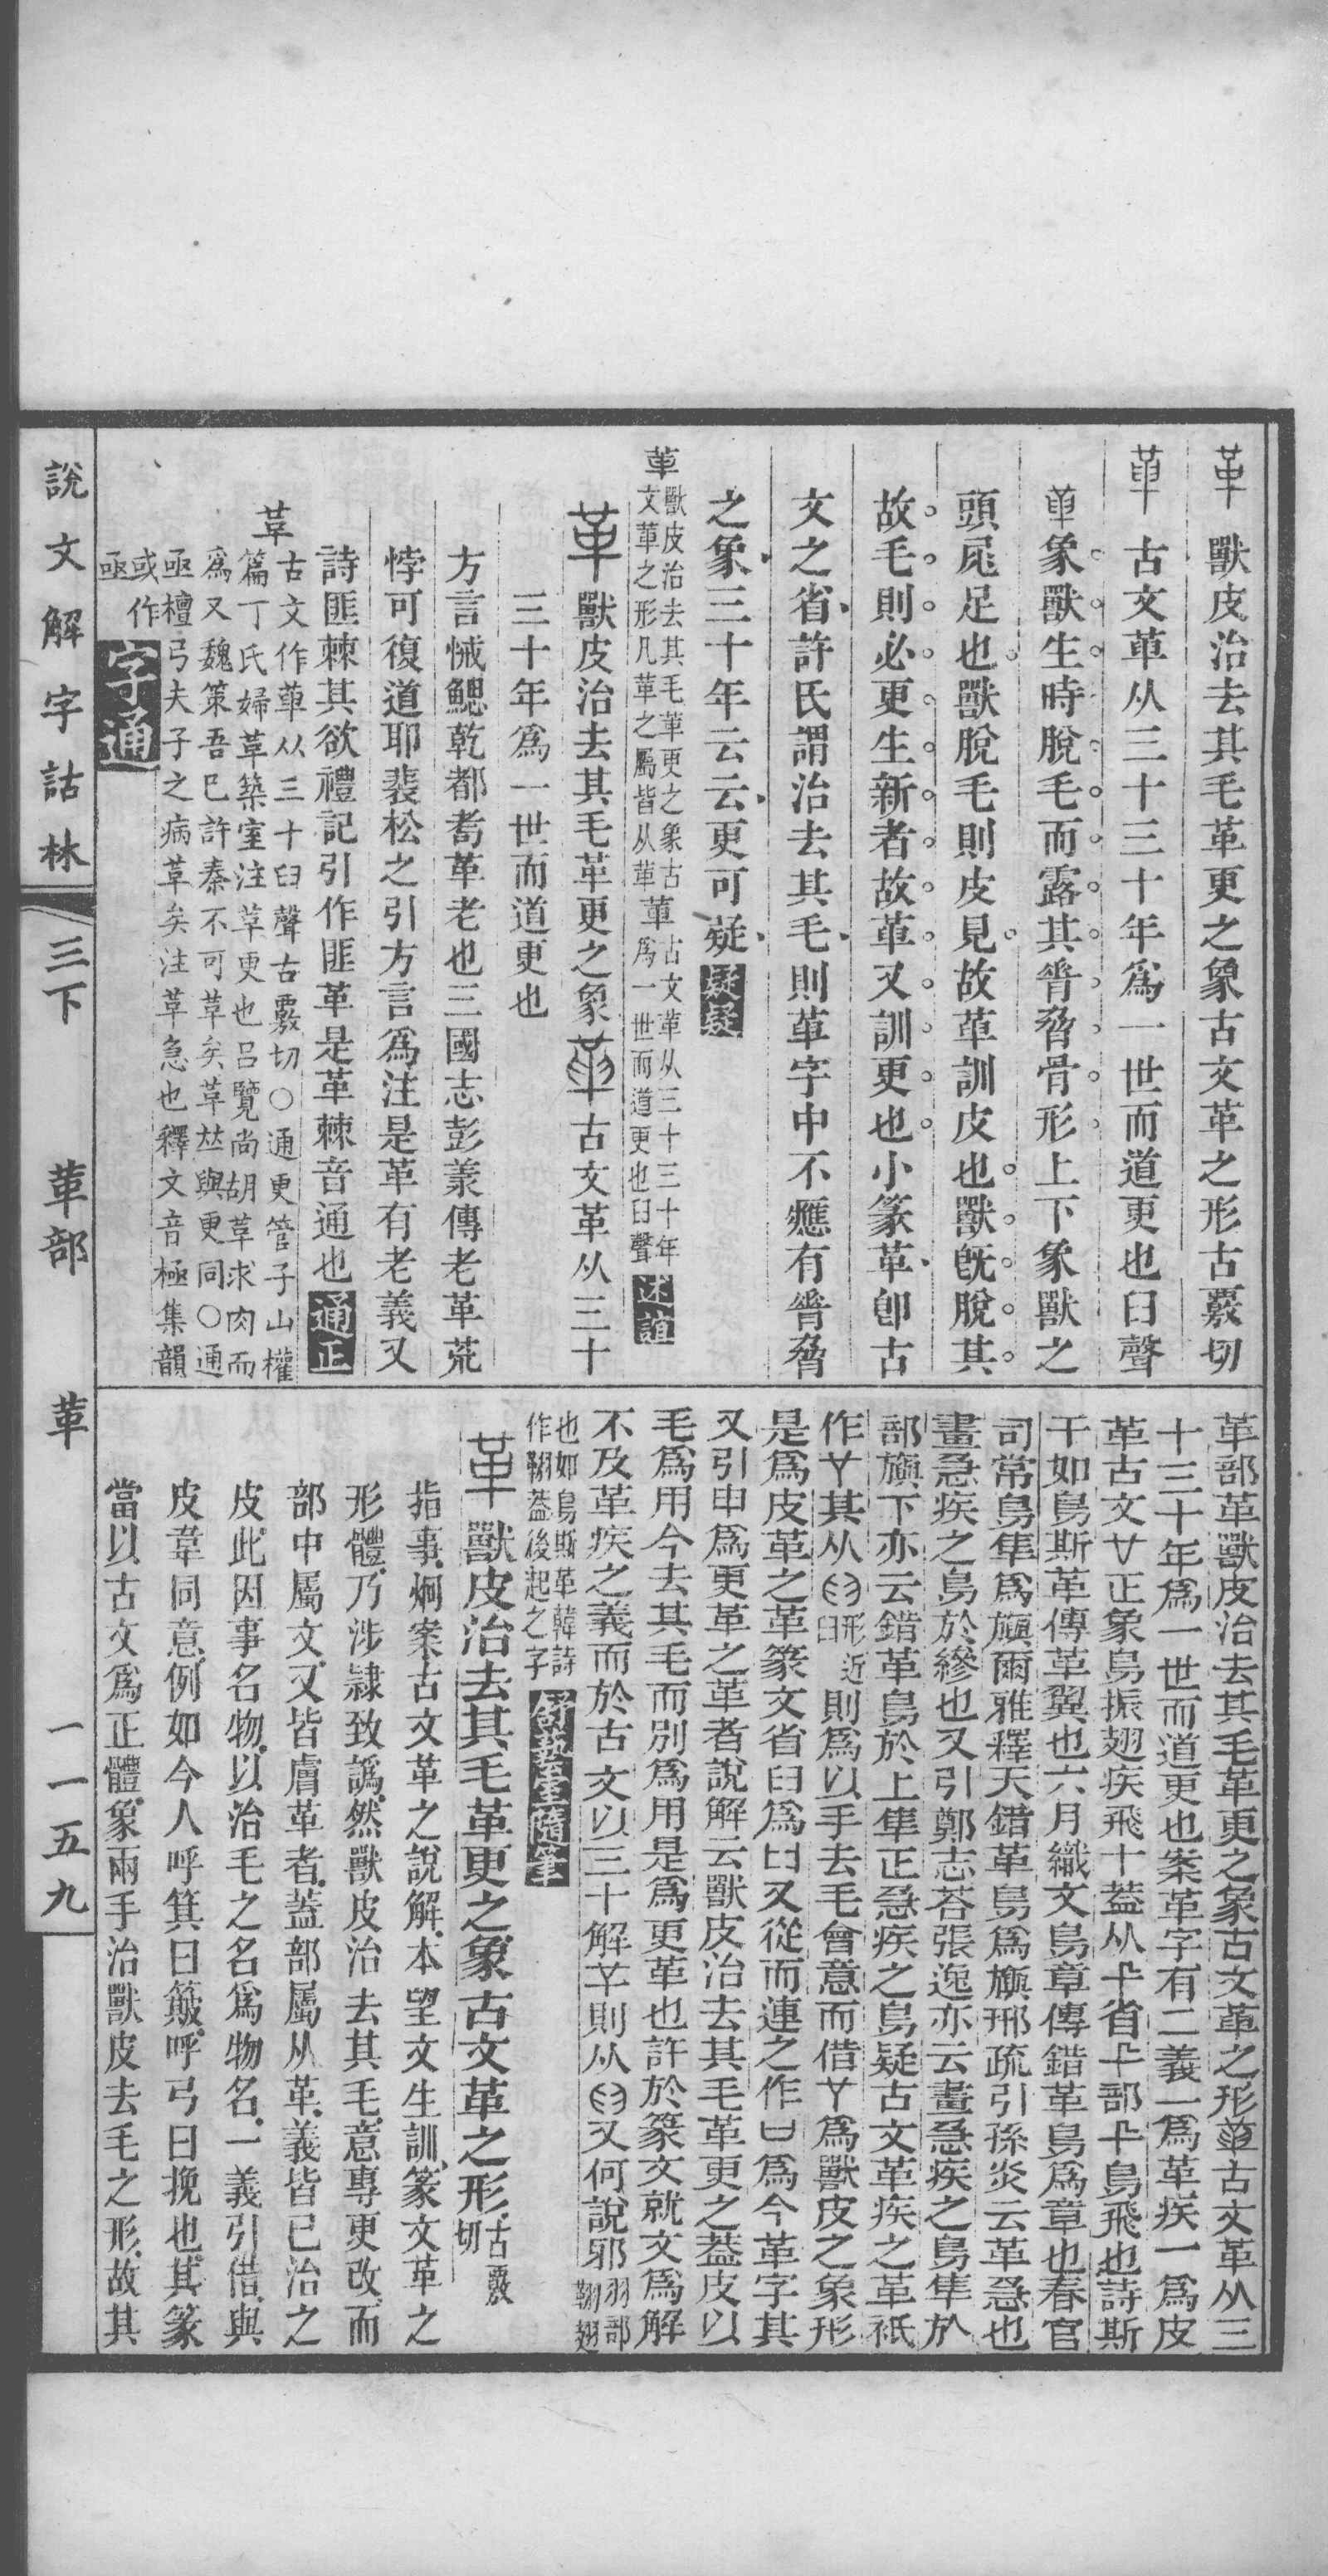 革 獸皮治去其毛革更之象古文革之形古覈切
𠦶 古文革从三十三十年爲一世而道更也𦥑聲
象獸生時脫毛而露其脊骨形上下象獸之
頭𡱒足也獸脫毛則皮見故革訓皮也獸旣脫其
故毛則必更生新者故革又訓更也小篆革卽古
文之省許氏謂治去其毛則革字中不應有脊脅
之象三十年云云更可疑疑疑
革獸皮治去其毛革更之象古
文革之形凡革之屬皆从革𠦶古文革从三十三十年
爲一世而道更也𦥑聲述誼
革 獸皮治去其毛革更之象𠦶古文革从三十
三十年爲一世而道更也
方言悈鰓乾都耇革老也三國志彭羕傳老革荒
悖可復道耶裴松之引方言爲注是革有老義又
詩匪棘其欲禮記引作匪革是革棘音通也通正
革古文作𠦶从三十𦥑聲古覈切〇通更管子山權
篇丁氏婦革築室注革更也呂覽尚胡革求肉而
爲又魏策吾已許秦不可革矣革𠀤與更同〇通
亟檀弓夫子之病革矣注革急也釋文音極集韻
或作
亟字通
革部革獸皮治去其毛革更之象古文革之形𠦶古文革从三
十三十年爲一世而道更也案革字有二義一爲革疾一爲皮
革古文廿正象鳥振翅疾飛十蓋从卂省 部卂鳥飛也詩斯
干如鳥斯革傳革翼也六月織文鳥章傳錯革鳥爲章也春官
司常鳥隼爲旟爾雅釋天錯革鳥爲旟邢疏引孫炎云革急也
畫急疾之鳥於縿也又引鄭志荅張逸亦云畫急疾之鳥隼於
部旟下亦云錯革鳥於上隼正急疾之鳥疑古文革疾之革祇
作 其从 形近𦥑則爲以手去毛會意而借 爲獸皮之象形
是爲皮革之革篆文省𦥑爲 又從而連之作 爲今革字其
又引申爲更革之革者說解云獸皮治去其毛革更之蓋皮以
毛爲用今去其毛而別爲用是爲更革也許於篆文就文爲解
不及革疾之義而於古文以三十解 則从 又何說邪羽部翶翅
也如鳥斯革韓詩
作翶蓋後起之字 隨筆
革 獸皮治去其毛革更之象古文革之形古覈切
指事炯案古文革之說解本望文生訓篆文革之
形體乃涉隸致譌然獸皮治去其毛意專更改而
部中屬文又皆膚革者蓋部屬从革義皆已治之
皮此因事名物以治毛之名爲物名一義引借與
皮韋同意例如今人呼箕曰簸呼弓曰挽也其篆
當以古文爲正體象兩手治獸皮去毛之形故其
說文解字詁林 三下 革部 革 一一五九